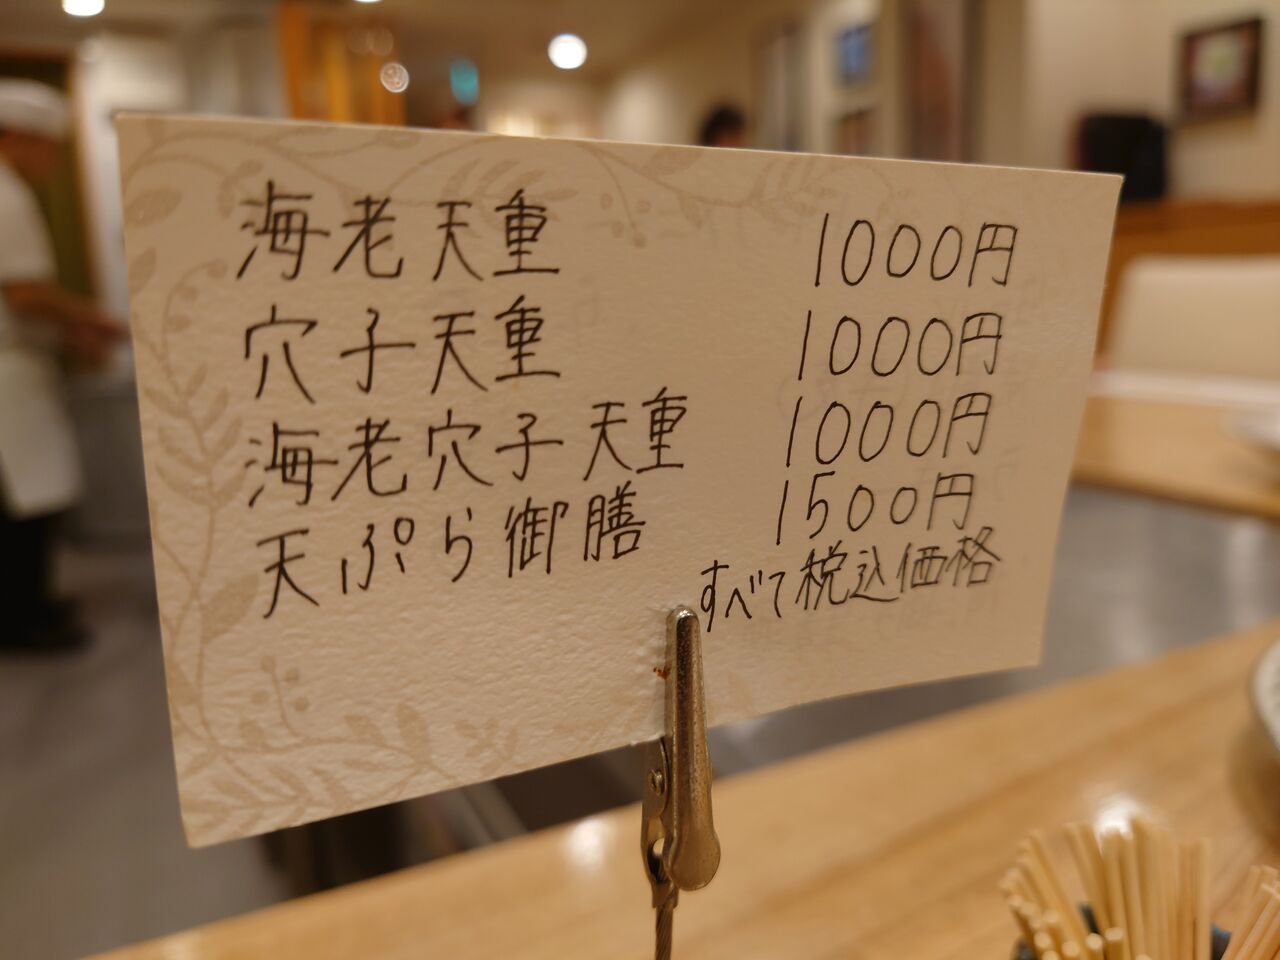 海老天重 1000円
穴子天重 1000円
海老穴子天重 1000円
天ぷら御膳 1500円
すべて税込価格